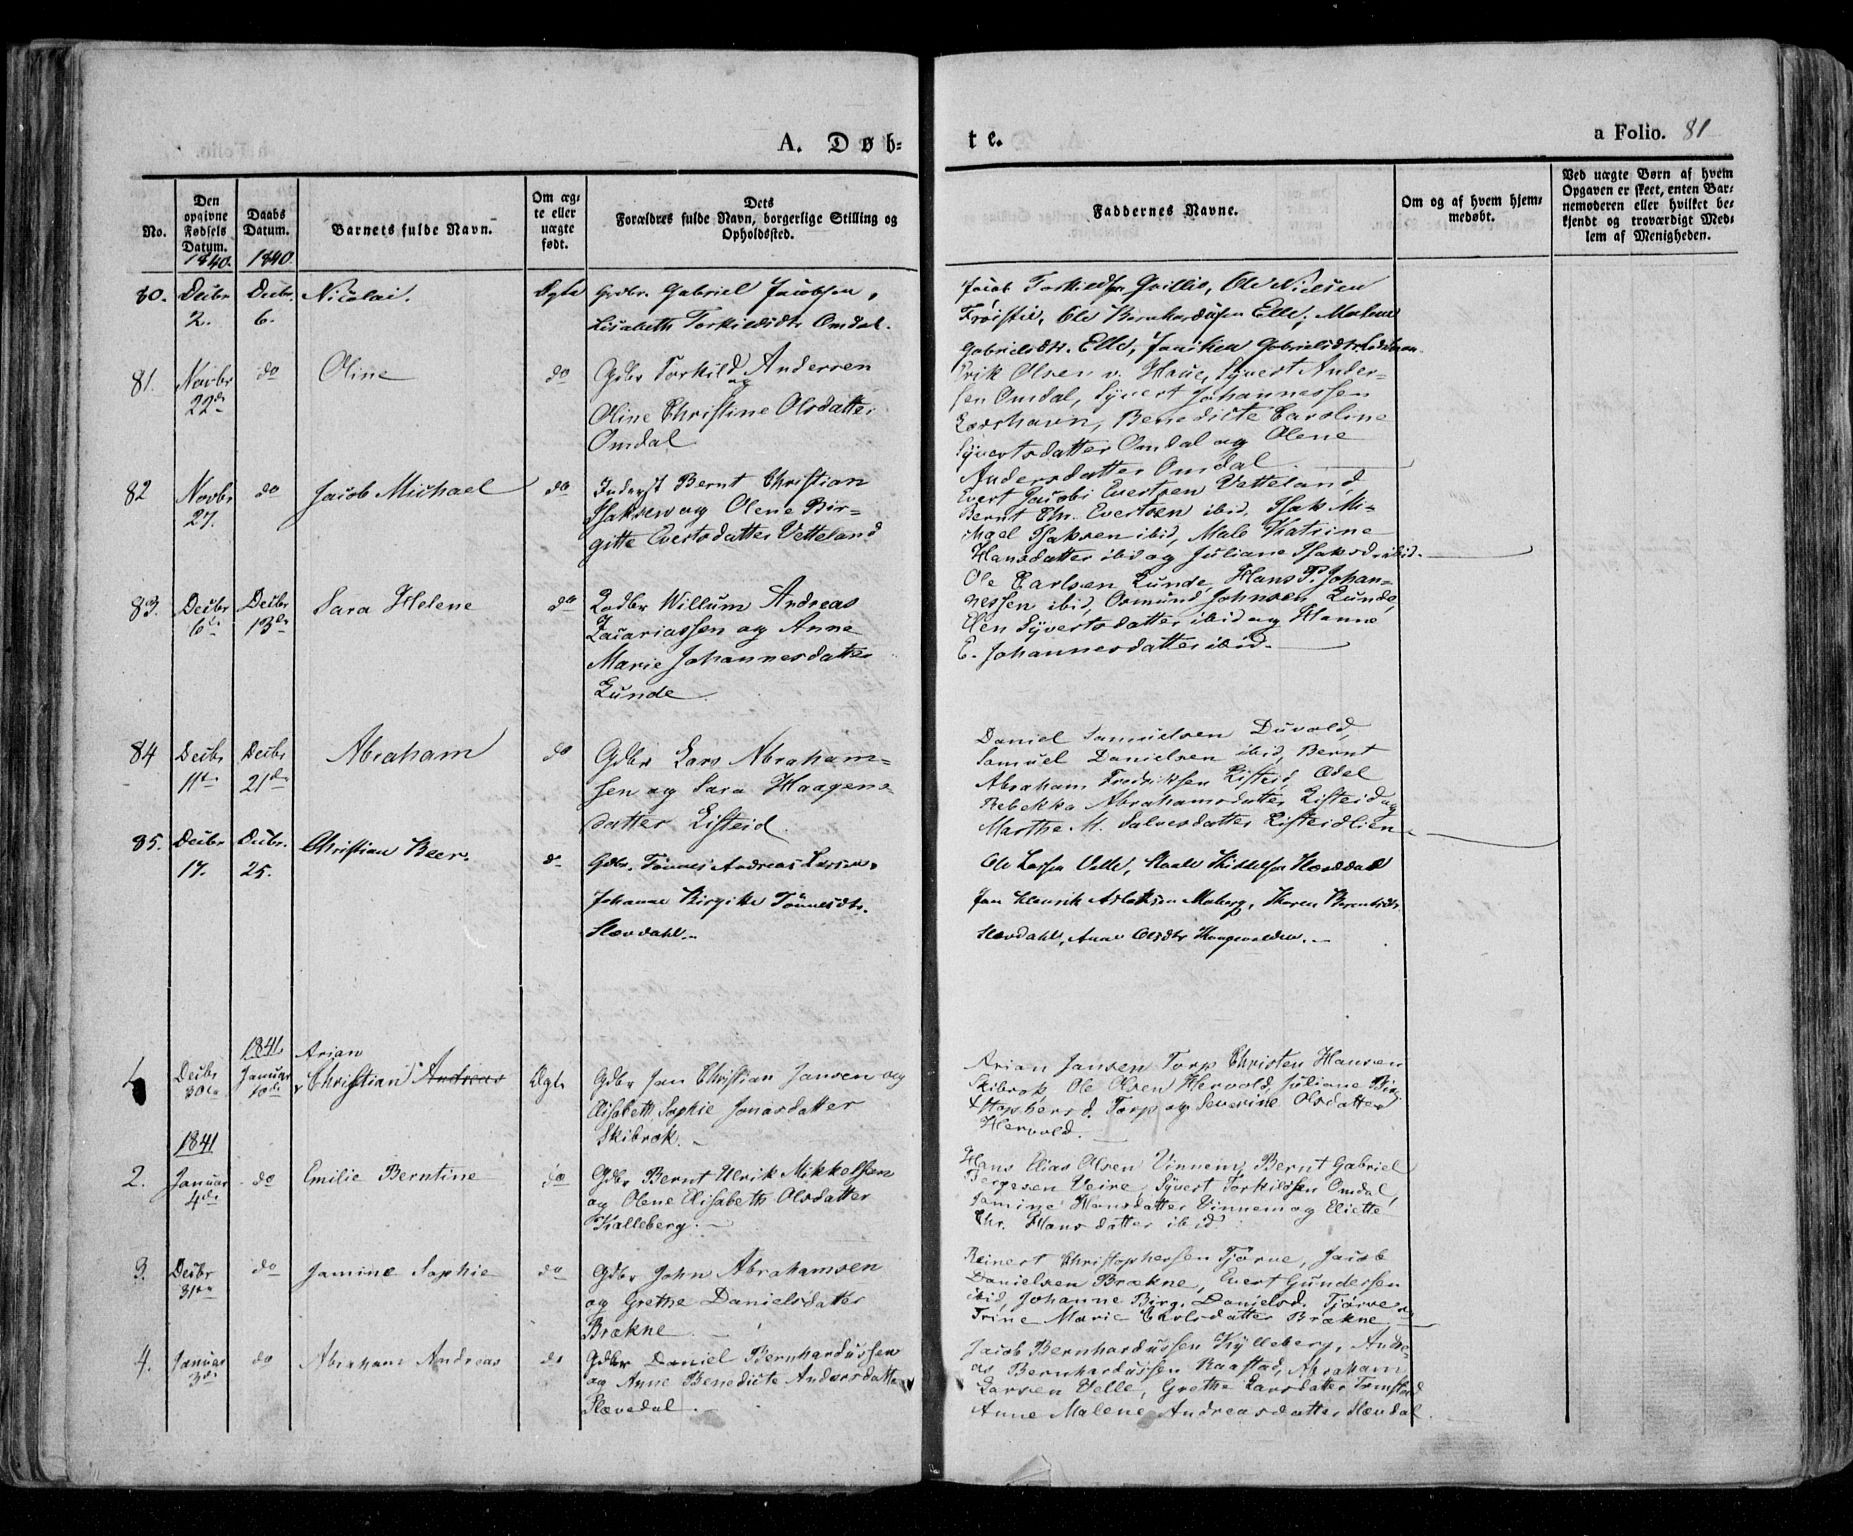 A. Døb-
te.
a Folio. 81
No.
Den
opgivne
Fødsels
Datum.
1840.
Daabs
Datum.
1840.
Barnets fulde Navn.
Om æg-
te eller
uægte
født.
Dets
Forældres fulde Navn, borgerlige Stilling og
Opholdssted.
Faddernes Navne.
Om og af hvem hjem-
medøbt.
Ved uægte Børn af hvem
Opgaven er skeet, enten Bar-
nemoderen eller hvilket be-
kjendt og troværdigt Med-
lem af Menigheden.
80.
Decbr
2.
Decbr.
6.
Nicolai.
Ægte
Grdbr. Gabriel Jacobsen,
Lisabeth Torkildsdtr Omdal.
Jacob Torkildsen Ole Nielsen
Frøistie, Ole Bernhardusen Elle, Malene
Gabrielsdtr. Elle, Gabrielsdtr
81.
Novbr
22de
do
Oline
do
Gdbr Torkild Andersen
og
Oline Christine Olsdatter
Omdal
Erik Olsen v. Haue, Syvert Ander-
sen Omdal, Syvert Johannessen
Korshavn, Benedicte Caroline
Syvertsdatter Omdal og Olene
Andersdatter Omdal.
82
Novbr
27.
do
Jacob Michael
do
Inderst Bernt Christian
Isaksen og Olene Bir-
gitte Evertsdatter Vetteland
Evert Jacobi Evertsen Vetteland
Bernt Chr. Evertsen ibid, Isak Mi-
chael Isaksen ibid, Male Katrine
Hansdatter ibid og Juliane Isaksd. ibid.
83.
Decbr
6te
Decbr
13de
Sara Helene
do
Gdbr Willum Andreas
Zacariassen og Anne
Marie Johannesdatter
Lunde
Ole Carlsen Lunde, Hans P. Johan-
nessen ibid, Osmund Johnsen Lunde,
Elen Syvertsdatter ibid og Hanne
E. Johannesdatter ibid.
84
Decbr
11te
Decbr
21de
Abraham
do
Gdbr Lars Abraham-
sen og Sara Haagens-
datter Listeid.
Daniel Samuelsen Duvold,
Samuel Danielsen ibid, Bernt
Abraham Fredriksen Listeid, Odel
Rebekka Abrahamsdatter Listeid og
Marthe M. Salvesdatter Listeidlien
85.
Decbr
17.
Decbr.
25.
Christian Beer.
do
Gdbr. Tønnes Andreas Larsen,
Johanne Birgitte Tønnesdtr.
Slævdahl.
Ole Larsen Velle, Staale Slævdal
Jan Henrik Aslaksen Moberg, Karen Berntsdtr
Slævdahl, Anne Olsdtr
1.
Decbr
30te
1841
Januar
10de
Arian
Christian Andreas
Ægte
Gdbr Jan Christian Jansen og
Elisabeth Sophie Jonasdatter
Skibrok.
Arian Jansen Torp Christen Hansen
Skibrok, Ole Olsen Hervold, Juliane Birg
Stophersd. Torp og Severine Olsdatter
Hervold.
1841
2.
Januar
4de
do
Emilie Berntine
do
Gdbr Bernt Ulrik Mikkelsen
og Olene Elisabeth Olsdatter
Kalleberg.
Hans Elias Olsen Vinnem, Bernt Gabriel
Børgesen Veire, Syvert Torkildsen Omdal,
Jamine Hansdatter Vinnem og Eliette
Chr. Hansdatter ibid.
3.
Decbr
31te
do
Jamine Sophie
do
Gdbr John Abrahamsen
og Grethe Danielsdatter
Brækne.
Reinert Christophersen Tjørve, Jacob
Danielsen Brækne, Evert Gundersen
ibid, Johanne Birg. Danielsd. Tjørve og
Trine Marie Carlsdatter Brækne
4.
Januar
3de
do
Abraham Andreas
do
Gdbr Daniel Bernhardussen
og Anne Benedicte Andersdatter
Slævdal.
Jacob Bernhardussen Kylleberg, Andre-
as Bernhardussen Raastad, Abraham
Larsen Velle, Grethe Larsdatter
Anne Malene Andreasdatter Slævdal